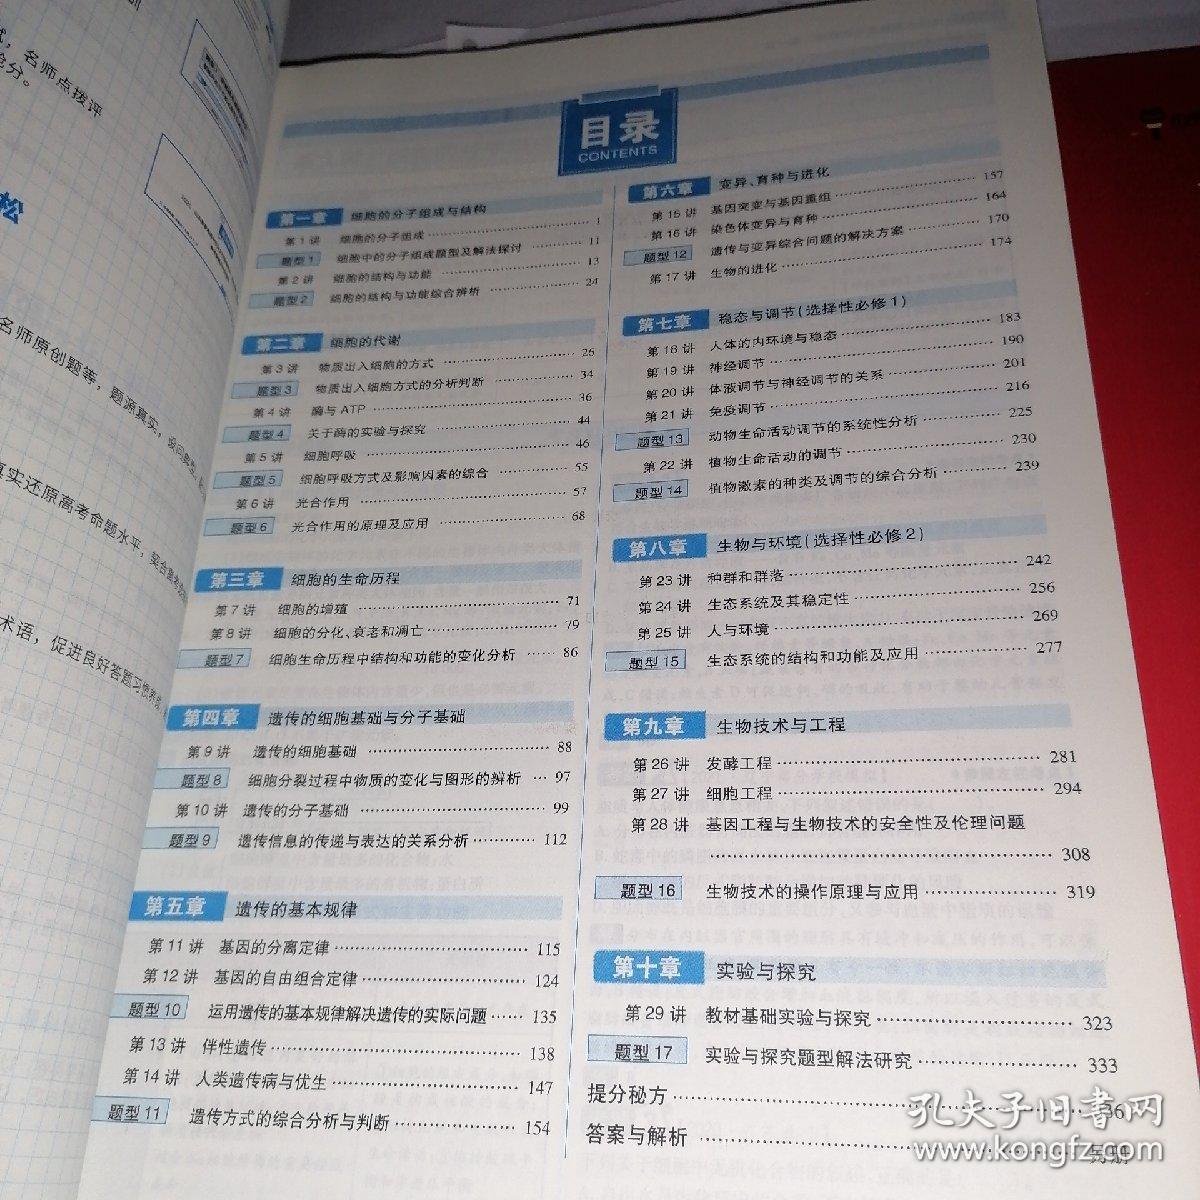 目录
CONTENTS
第一章 细胞的分子组成与结构
第1讲 细胞的分子组成 1
题型1 细胞中的分子组成题型及解法探讨 11
第2讲 细胞的结构与功能 13
题型2 细胞的结构与功能综合辨析 24
第二章 细胞的代谢
第3讲 物质出入细胞的方式 26
题型3 物质出入细胞方式的分析判断 34
第4讲 酶与ATP 36
题型4 关于酶的实验与探究 44
第5讲 细胞呼吸 46
题型5 细胞呼吸方式及影响因素的综合 55
第6讲 光合作用 57
题型6 光合作用的原理及应用 68
第三章 细胞的生命历程
第7讲 细胞的增殖 71
第8讲 细胞的分化、衰老和凋亡 79
题型7 细胞生命历程中结构和功能的变化分析 86
第四章 遗传的细胞基础与分子基础
第9讲 遗传的细胞基础 88
题型8 细胞分裂过程中物质的变化与图形的辨析 97
第10讲 遗传的分子基础 99
题型9 遗传信息的传递与表达的关系分析 112
第五章 遗传的基本规律
第11讲 基因的分离定律 115
第12讲 基因的自由组合定律 124
题型10 运用遗传的基本规律解决遗传的实际问题 135
第13讲 伴性遗传 138
第14讲 人类遗传病与优生 147
题型11 遗传方式的综合分析与判断 154
第六章 变异、育种与进化
第15讲 基因突变与基因重组 157
第16讲 染色体变异与育种 164
题型12 遗传与变异综合问题的解决方案 170
第17讲 生物的进化 174
第七章 稳态与调节(选择性必修1)
第18讲 人体的内环境与稳态 183
第19讲 神经调节 190
第20讲 体液调节与神经调节的关系 201
第21讲 免疫调节 216
题型13 动物生命活动调节的系统性分析 225
第22讲 植物生命活动的调节 230
题型14 植物激素的种类及调节的综合分析 239
第八章 生物与环境(选择性必修2)
第23讲 种群和群落 242
第24讲 生态系统及其稳定性 256
第25讲 人与环境 269
题型15 生态系统的结构和功能及应用 277
第九章 生物技术与工程
第26讲 发酵工程 281
第27讲 细胞工程 294
第28讲 基因工程与生物技术的安全性及伦理问题
308
题型16 生物技术的操作原理与应用 319
第十章 实验与探究
第29讲 教材基础实验与探究 323
题型17 实验与探究题型解法研究 333
提分秘方
答案与解析
名师点拨评
抢分。
松
名师原创题等，题源真实，
真实还原高考命题水平，
术语，促进良好答题习惯养成
孔夫子旧书网
www.kongfz.com